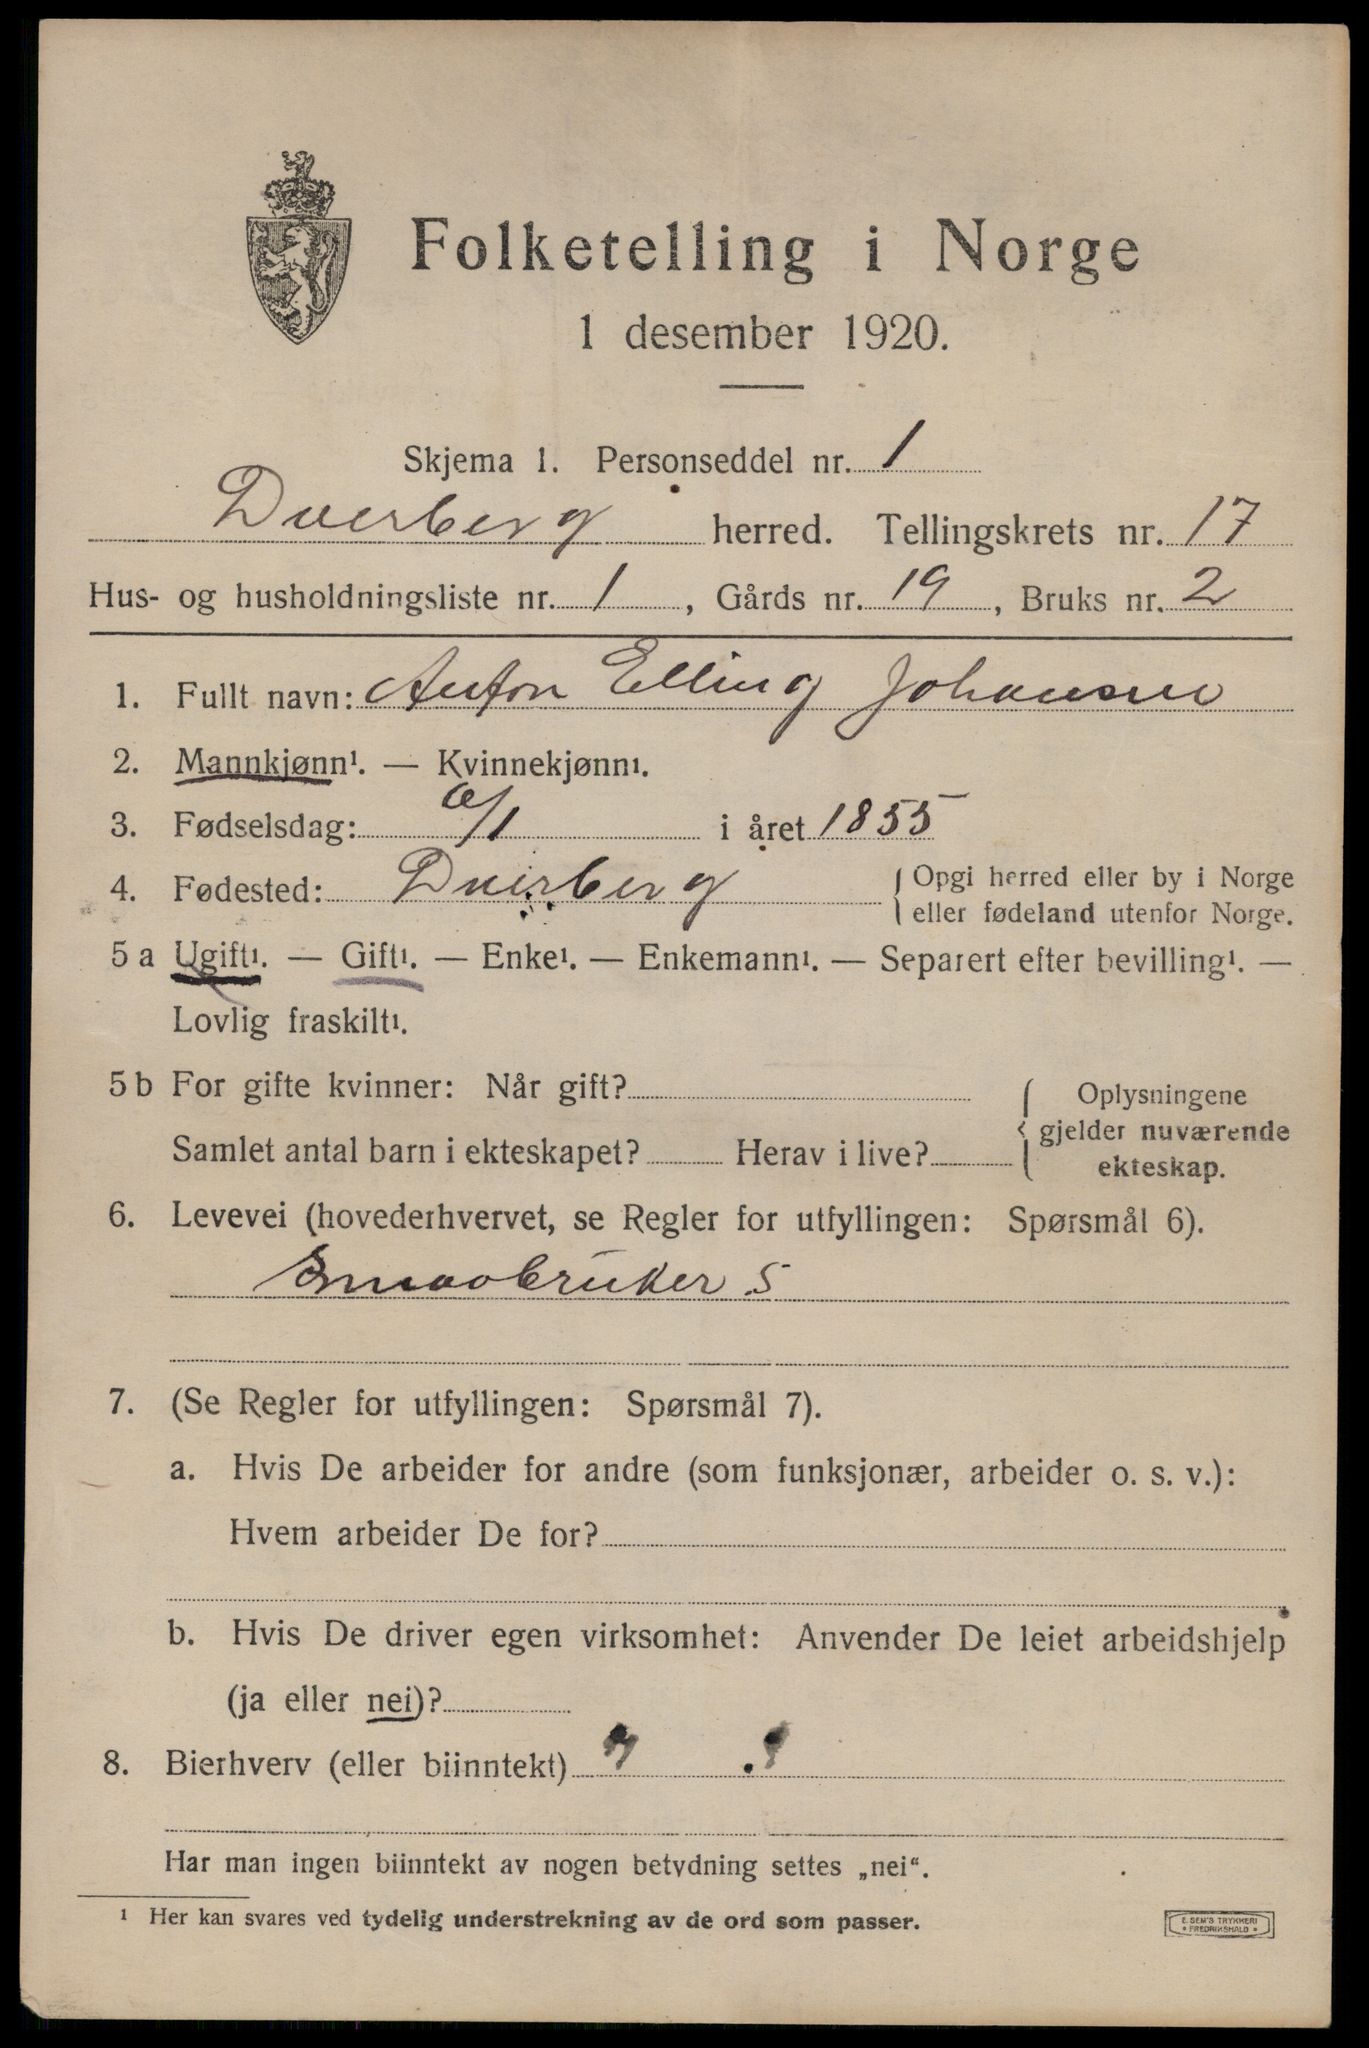 Folketelling i Norge
1 desember 1920.
Skjema 1. Personseddel nr. 1
Dverberg herred. Tellingskrets nr. 17
Hus- og husholdningsliste nr. 1, Gårds nr. 19, Bruks nr. 2
1. Fullt navn: Anton Elling Johansen
2. Mannkjønn¹. — Kvinnekjønn¹.
3. Fødselsdag: 6/1 i året 1855
4. Fødested: Dverberg { Opgi herred eller by i Norge
eller fødeland utenfor Norge.
5 a Ugift¹. — Gift¹. — Enke¹. — Enkemann¹. — Separert efter bevilling¹. —
Lovlig fraskilt¹.
5 b For gifte kvinner: Når gift?
Samlet antal barn i ekteskapet? Herav i live?
{ Oplysningene
gjelder nuværende
ekteskap.
6. Levevei (hovederhvervet, se Regler for utfyllingen: Spørsmål 6).
Smaabruker S
7. (Se Regler for utfyllingen: Spørsmål 7).
a. Hvis De arbeider for andre (som funksjonær, arbeider o. s. v.):
Hvem arbeider De for?
b. Hvis De driver egen virksomhet: Anvender De leiet arbeidshjelp
(ja eller nei)?
8. Bierhverv (eller biinntekt)
Har man ingen biinntekt av nogen betydning settes „nei“.
¹ Her kan svares ved tydelig understrekning av de ord som passer.
E. SEM'S TRYKKERI
• FREDRIKSHALD •